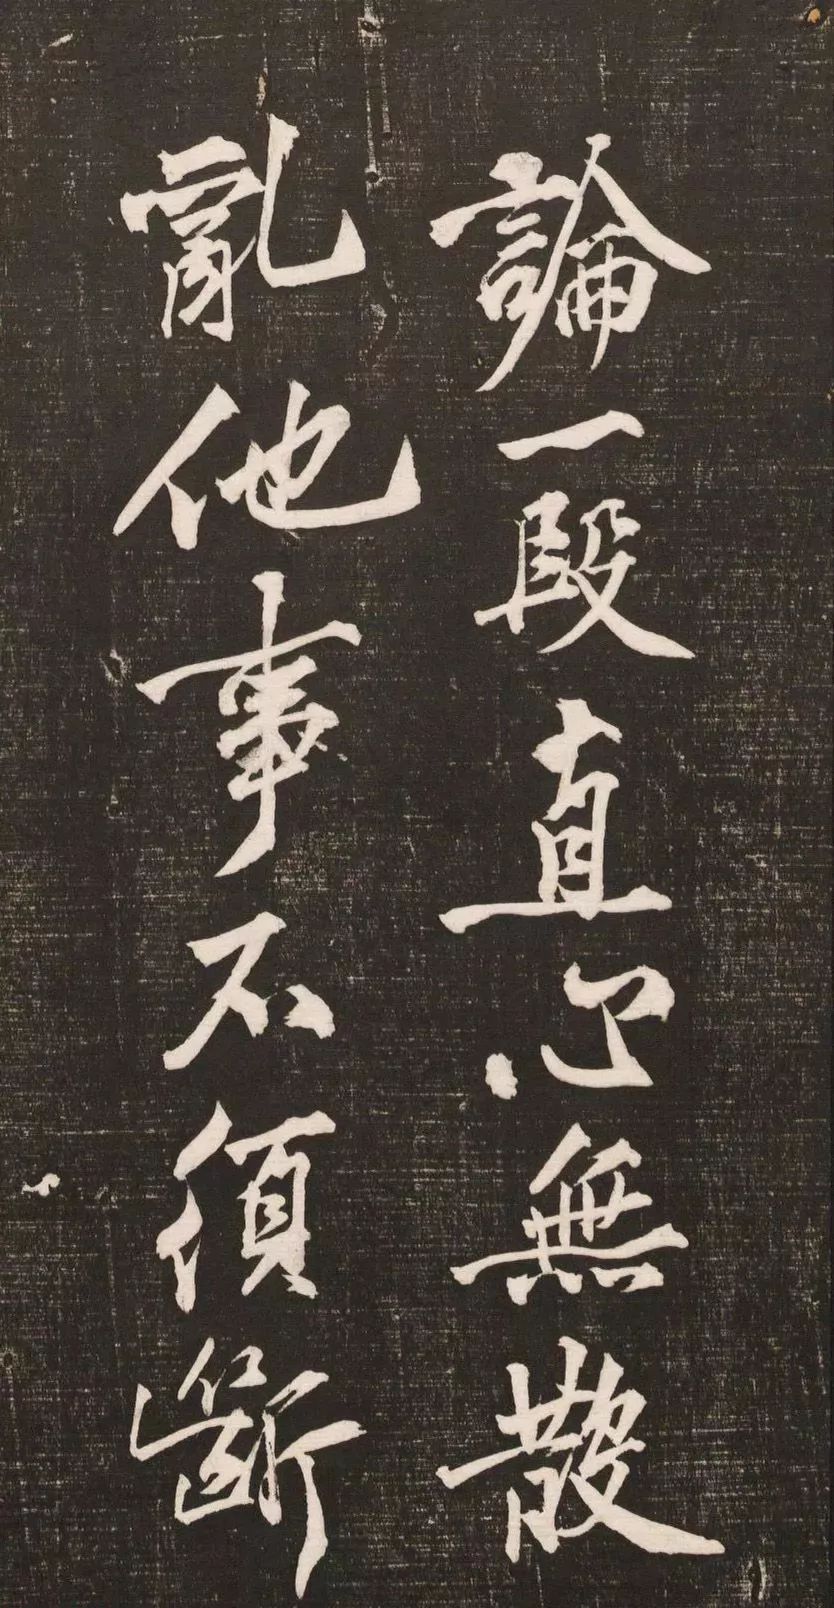 論一段直心無散
亂他事不須斷